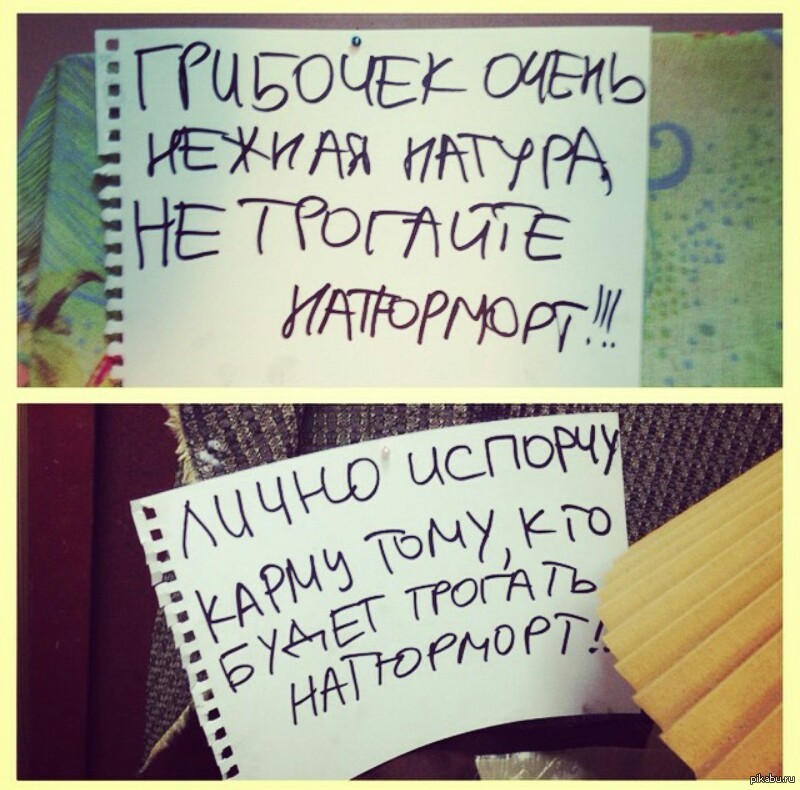 ГРИБОЧЕК ОЧЕНЬ
НЕЖНАЯ НАТУРА,
НЕ ТРОГАЙТЕ
НАТЮРМОРТ!!!
ЛИЧНО ИСПОРЧУ
КАРМУ ТОМУ, КТО
БУДЕТ ТРОГАТЬ
НАТЮРМОРТ!!
pikabu.ru